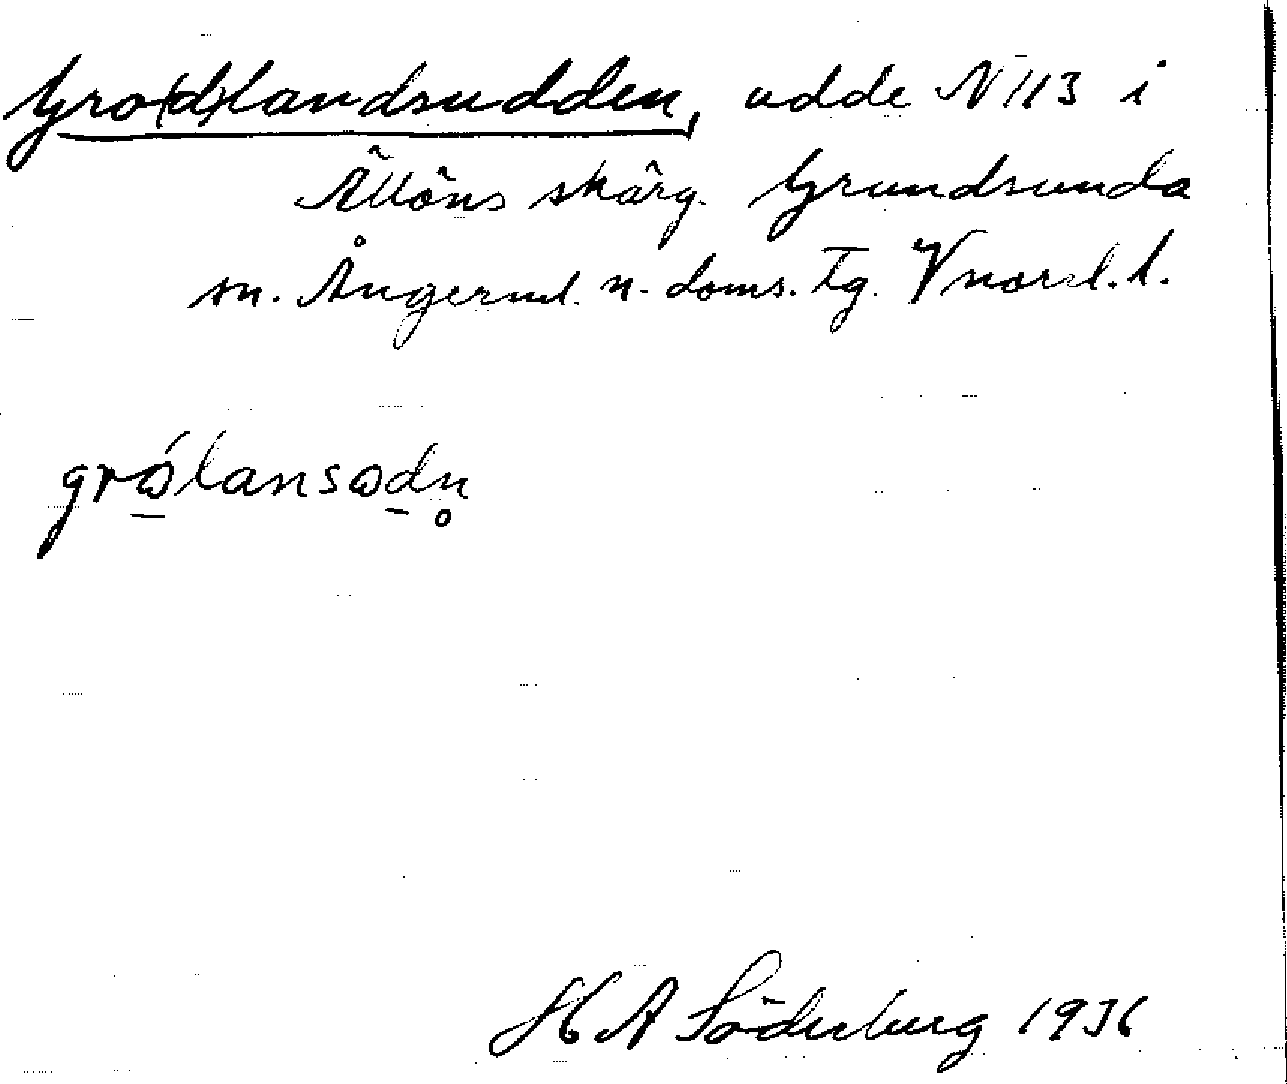 Gro(d)landsudden, udde N 113 i
Ällöns skärg. Grundsunda
sn. Ångerml. n. doms. tg. Vnorrl. l.
grɷ́lansɷdn̥
H A Söderberg 1936